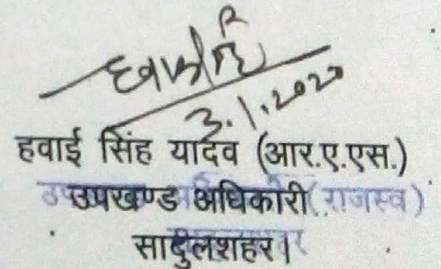 3.1.2020
हवाई सिंह यादव (आर.ए.एस.)
उपखण्ड अधिकारी (राजस्व)
सादुलशहर